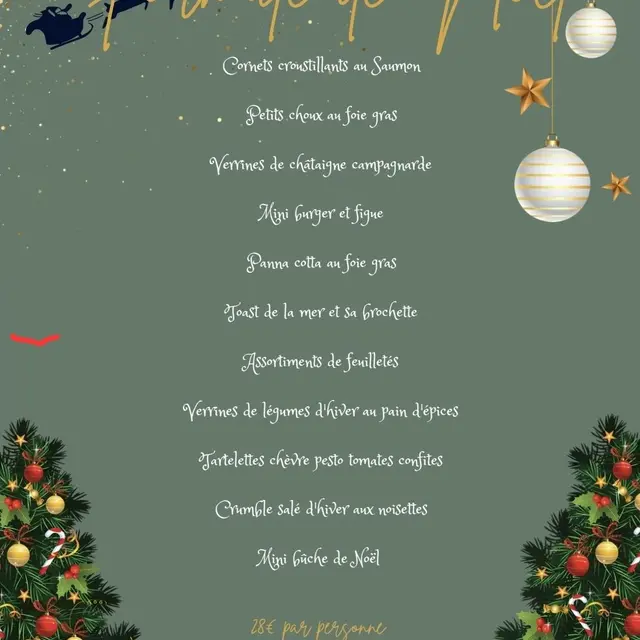 de Noël
Cornets croustillants au Saumon
Petits choux au foie gras
Verrines de châtaigne campagnarde
Mini burger et figue
Panna cotta au foie gras
Toast de la mer et sa brochette
Assortiments de feuilletés
Verrines de légumes d'hiver au pain d'épices
Tartelettes chèvre pesto tomates confites
Crumble salé d'hiver aux noisettes
Mini bûche de Noël
28€ par personne